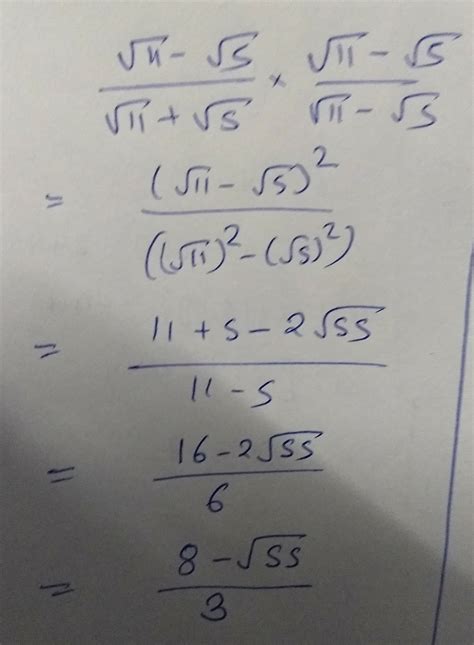 (√11 - √5)/(√11 + √5) × (√11 - √5)/(√11 - √5)
= (√11 - √5)²/((√11)² - (√5)²)
= (11 + 5 - 2√55)/(11 - 5)
= (16 - 2√55)/6
= (8 - √55)/3